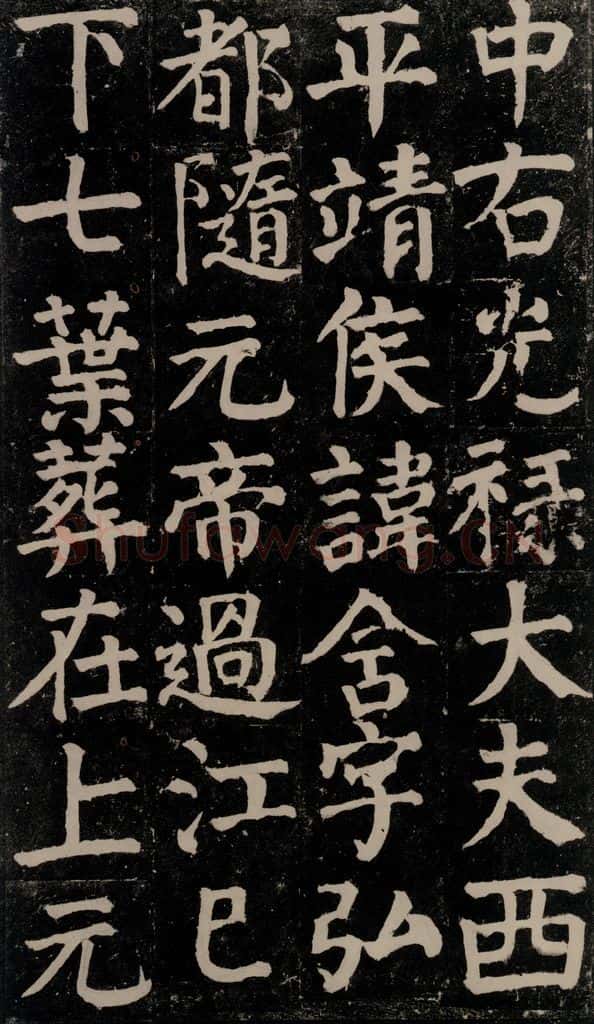 中右光祿大夫西
平靖侯諱含字弘
都隨元帝過江已
下七葉葬在上元
Shufawang.CN